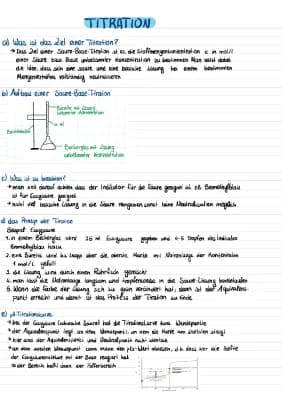 TITRATION
a) Was ist das Ziel einer Titration?
→ Das Ziel einer Säure-Base-Titration ist es die Stoffmengenkonzentration c in mol/l
einer Säure bzw. Base unbekannter Konzentration zu bestimmen. Man nutzt dabei
die Idee, dass sich eine saure und eine basische Lösung bei einem bestimmten
Mengenverhältnis vollständig neutralisieren
b) Aufbau einer Säure-Base-Titration
Bürette mit Lösung
bekannter Konzentration
Becherglas mit Lösung
unbekannter Konzentration
c) Was ist zu beachten?
→ man muss darauf achten dass der Indikator für die Säure geeignet ist z.B. Bromthymolblau
ist für Essigsäure geeignet
→ nicht viel basische Lösung in die Säure keine Neutralisation möglich
d) das Prinzip der Titration
Beispiel Essigsäure
1. in einem Becherglas wird 25 ml Essigsäure gegeben und 4-5 Tropfen des Indikators
Bromthymolblau hinzu
2. eine Bürette wird bis knapp über die oberste Marke mit Natronlauge der Konzentration
1 mol/l gefüllt
3. die Lösung wird durch einen Rührfisch gemischt
4. man lässt die Natronlauge langsam und tropfenweise in die Säure-Lösung
5. Wenn die Farbe der Lösung sich zu grün verändert hat, dann ist der Äquivalenz-
punkt erreicht und damit ist der Prozess der Titration zu Ende
e) pH-Titrationskurve
→ bei der Essigsäure (schwache Säure) hat die Titrationskurve zwei Wendepunkte
→ der Äquivalenzpunkt liegt an dem Wendepunkt, an dem die Kurve am steilsten steigt
→ hier sind der Äquivalenzpunkt und Neutralpunkt nicht identisch
→ an dem zweiten Wendepunkt kann man den pKs-Wert ablesen, d.h. dass hier die Hälfte
der Essigsäuremoleküle mit der Base reagiert hat
→ der Bereich heißt dann der Pufferbereich